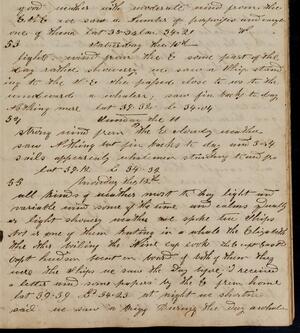 good weather with moderate wind from the
E & E we saw a number of porpoises and caught
one of them Lat 35-30 Lon. 34-21 W
53 Saturday the 10th
light wind from the E some part of the
day rather showery we saw a Ship stand
ing to the & E she passed close to us to the
windward a whaler, saw fin back to day
Nothing more Lat 39-32 Lo 34-04
54 Sunday the 11
Strong wind from the E cloudy weather
saw Nothing but fin backs to day and 3-4
sails apparently whalemen standing to and fro
Lat 39-10 Lo 34-39
55 Monday the 12th
all kinds of weather most to day light and
variable wind some of the time and calms
a light showery weather we spoke two Ships
one of them cutting in a whale the Elizabeth
the other boiling the
Capt Hudson went on board of both of them they
were the Ships we saw the day before, I received
a letter and some papers by the E from home
Lat 39-39 Lo 34-23 at night we shorten
sail we saw a Brig During the day a whale